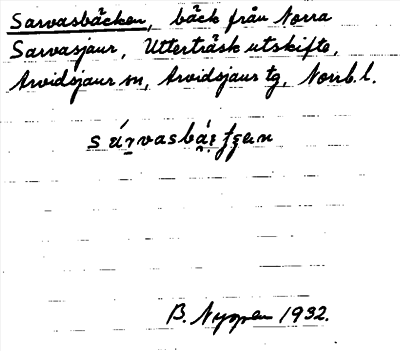 Sarvasbäcken, bäck från Norra
Sarvasjaur, Utterträsk utskifte,
Arvidsjaur sn, Arvidsjaur tg, Norrb.l.
B. Nygren 1932.